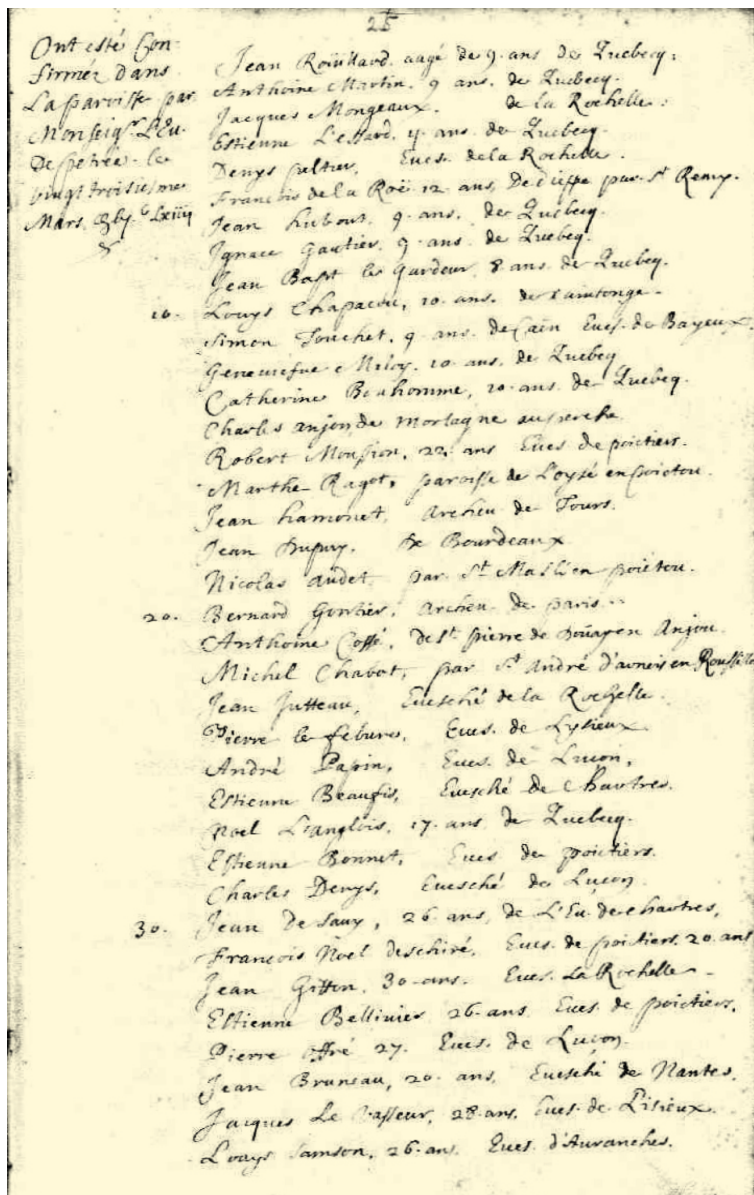 25
Ont esté Con-
firméz dans
La paroisse par
Monseigr. L'Eu.
De petrée le
vingt troisiesme
Mars. Lxiiij
Jean Roüillard aagé de 9. ans de Quebecq.
Anthoine Martin. 9 ans. de Quebecq.
Jacques Mongeaux. de la Rochelle.
Estienne L'essard. ans. de Quebecq.
Denys Euesc. de la Rochelle.
François de la Roë 12. ans. De dieppe par. St Remy.
Jean hubout. 9. ans. de Quebecq.
Ignace Gautier. 9. ans. de Quebeq.
Jean Bapt le Gardeur 8 ans. de Quebeq.
10. Louys Chapacou, 10. ans. de Saintonge.
Simon Touchet. 9. ans. de Caën Eues. de Bayeux.
Geneuiefue 10. ans. de Quebeq
Catherine Bonhomme, 10. ans. de Quebeq.
Charles anjon, de mortagne au perche
Robert Moussion, 22. ans Eues de poictiers.
Marthe Ragot, paroisse de en poictou.
Jean hamonet, Archeu de Tours.
Jean Dupuy, De Bourdeaux
Nicolas audet, par St en poictou.
20. Bernard Gontier, Archeu. de paris.
Anthoine Cossé, de St. pierre de Doüay en Anjou.
Michel Chabot, par St André en
Jean Jutteau, Euesché de la Rochelle.
Pierre le febure, Eues. de Lysieux
André Papin, Eues. de Luçon,
Estienne Beaufis, Euesché de Chartres.
Noel L'anglois, 17. ans de Quebecq.
Estienne Bonnet, Eues de poictiers.
Charles Denys, Euesché de Luçon.
30. Jean De Sauy, 26. ans, de L'Eu. de chartres,
François Noel deschiré, Eues. de poictiers. 20. ans
Jean Gitton, 30. ans. Eues. La Rochelle.
Estienne Bellinier 26. ans Eues. de poictiers,
Pierre offré 27. Eues. de Luçon.
Jean Bruneau, 20. ans, Euesché de Nantes.
Jacques Le Vasseur, 28. ans, Eues. de Lisieux.
Louys Samson, 26. ans. Eues. d'Auranches.